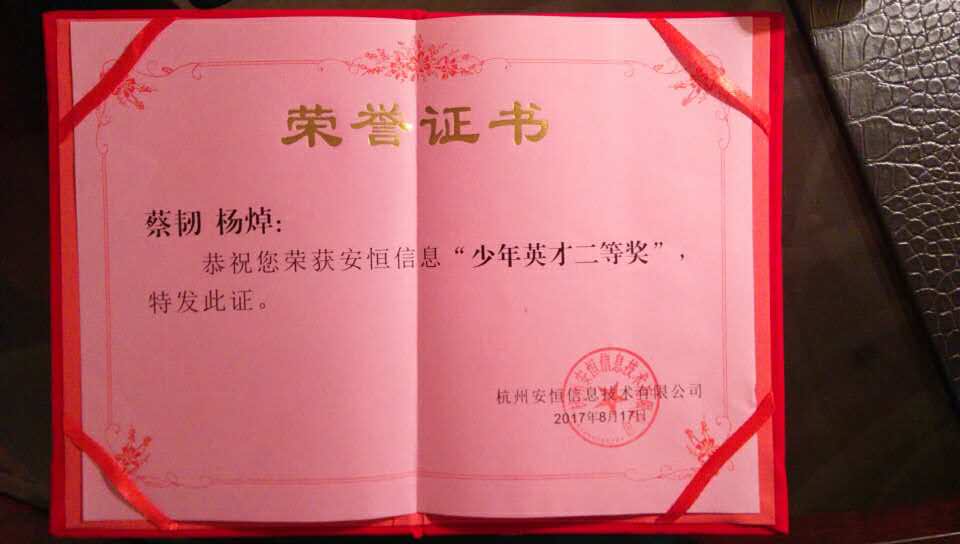 荣誉证书
蔡韧 杨焯:
恭祝您荣获安恒信息“少年英才二等奖”,
特发此证。
杭州安恒信息技术有限公司
2017年8月17日